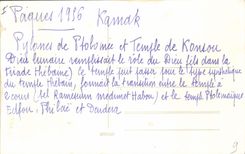 Pâques 1936 Karnak
Pylones de Ptolomée et Temple de Konsou
Dieu lunaire remplissait le rôle du Dieu fils dans la
Triade thébaine, le temple qui passe pour le type symbolique
du temple thébain, formait la transition entre le temple à
2 cours (tel Ramesseum medinet Habou) et le temple Ptolémaique
Edfou. Philaé et Dendera
9